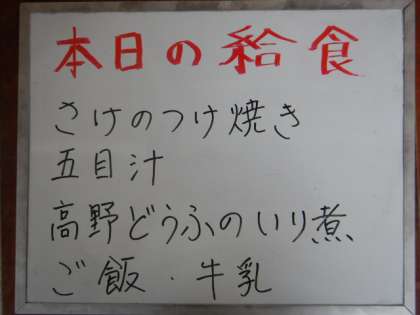 本日の給食
さけのつけ焼き
五目汁
高野どうふのいり煮
ご飯・牛乳